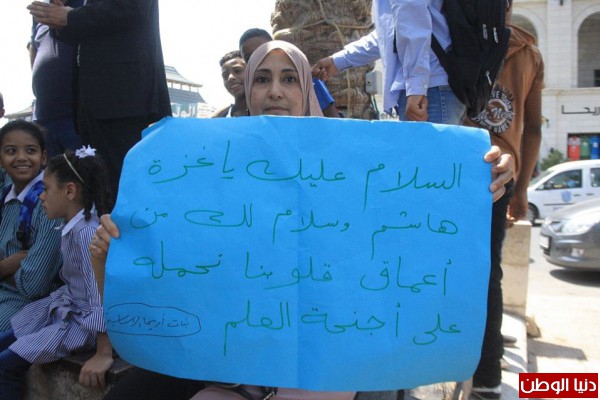 السلام عليك يا غزة
هاشم وسلام لك من
أعماق قلوبنا نحمله
على أجنحة العلم
بنات أريحا الاساسية
دنيا الوطن